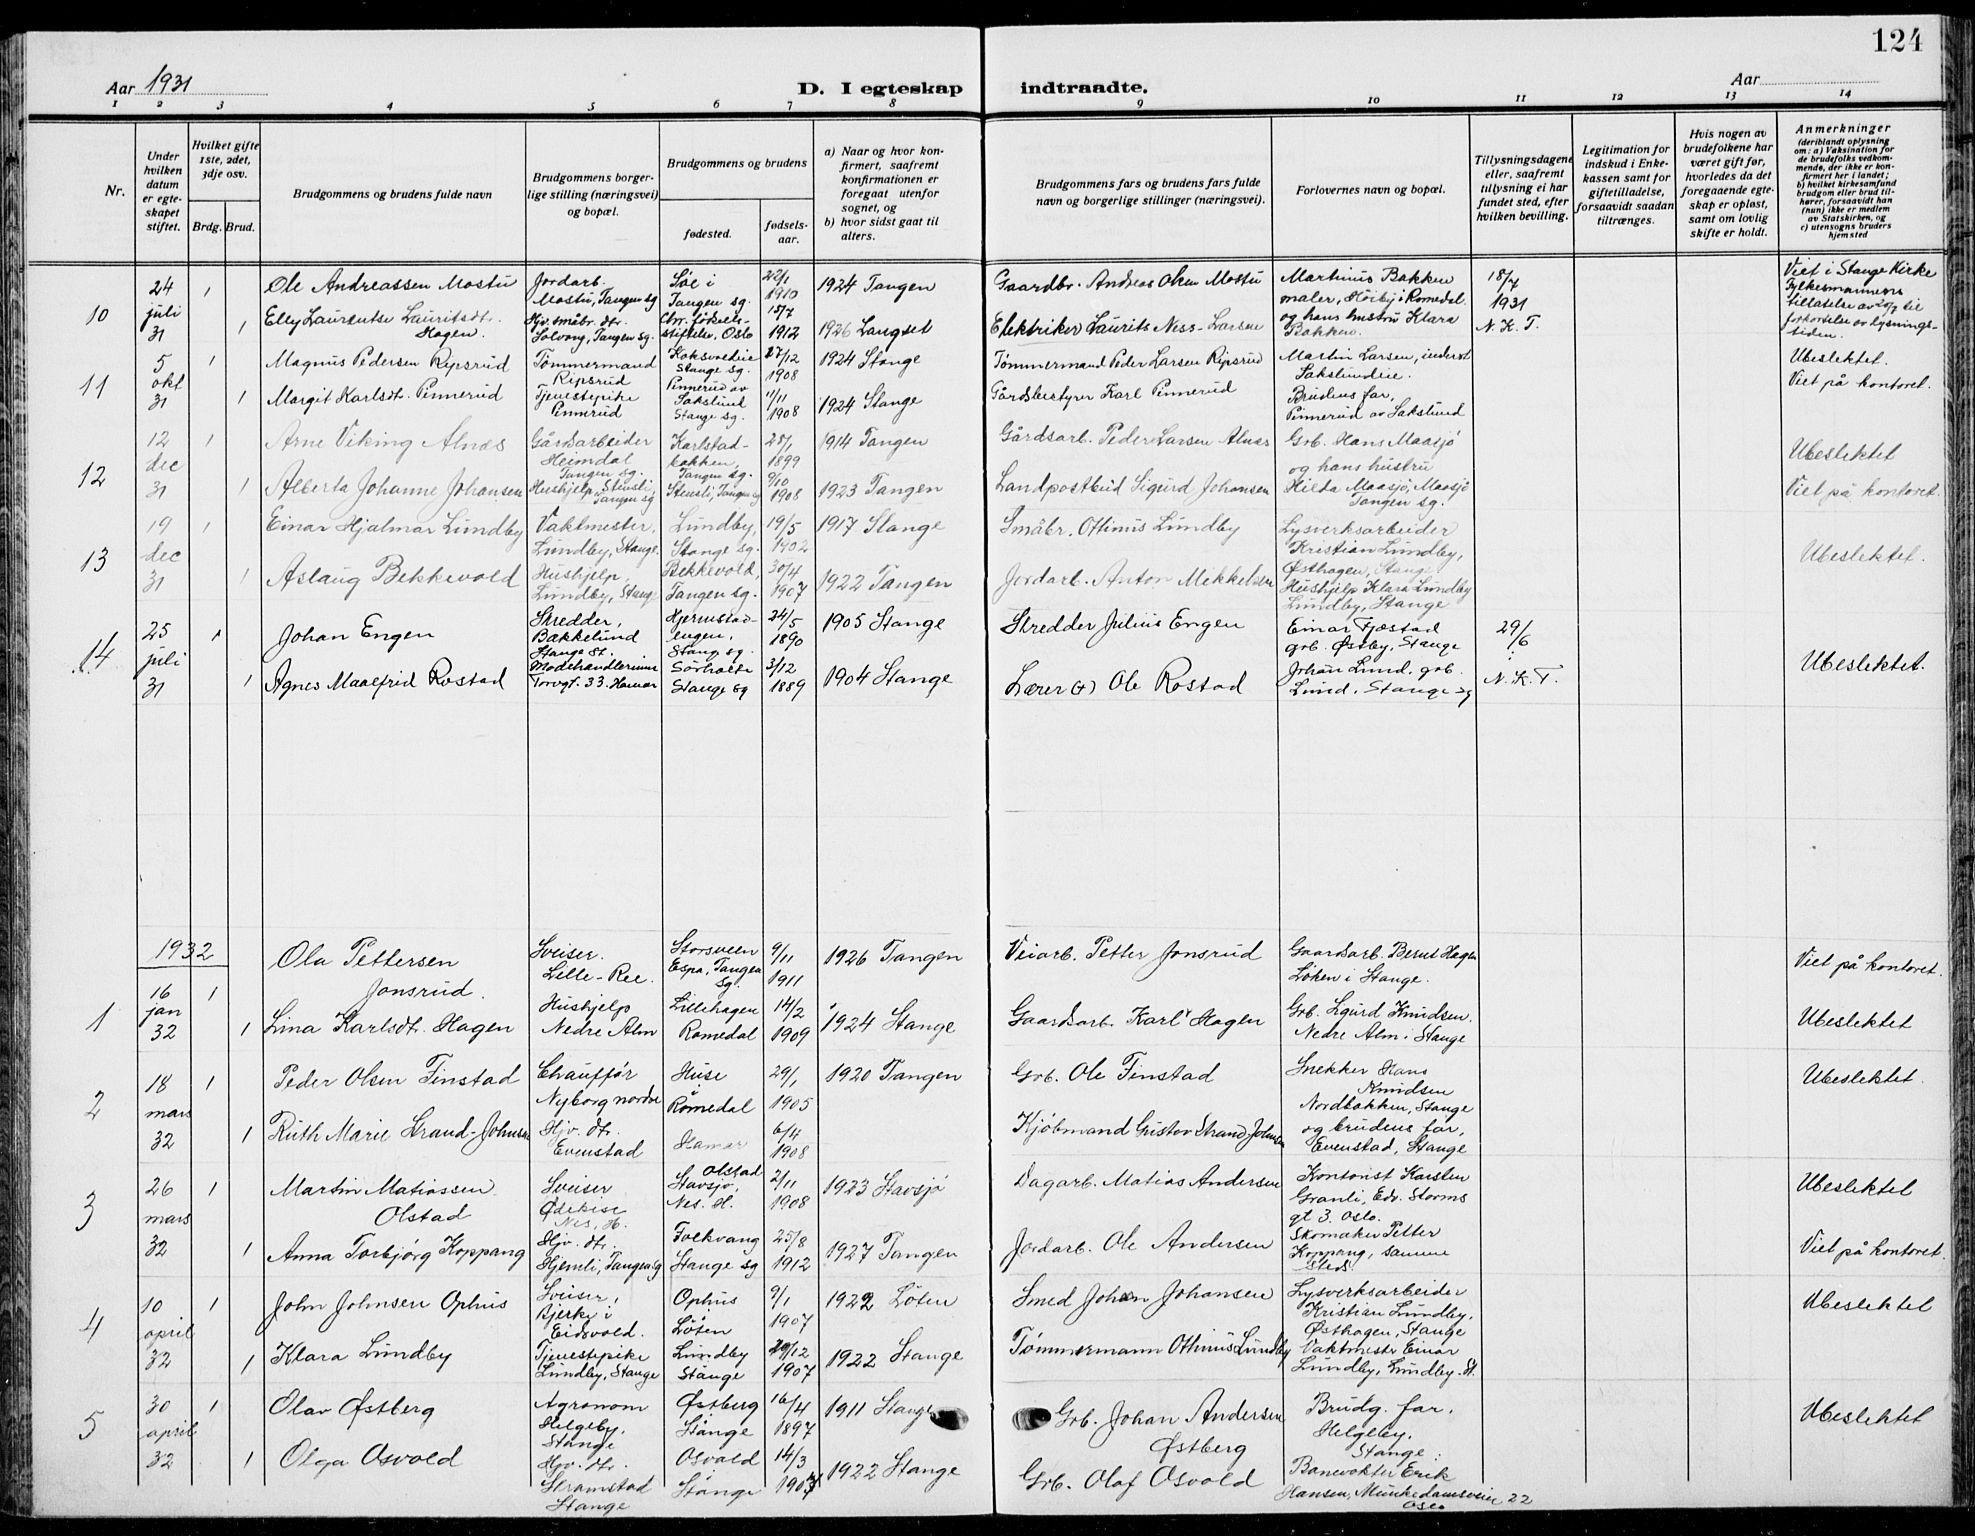 124
Aar 1931
D. I egteskap indtraadte.
Aar
1 2 3 4 5 6 7 8 9 10 11 12 13 14
Nr.
Under hvilken datum er egteskapet stiftet.
Hvilket gifte 1ste, 2det, 3dje osv.
Brdg. Brud.
Brudgommens og brudens fulde navn
Brudgommens borgerlige stilling (næringsvei) og bopæl.
Brudgommens og brudens
fødested.
fødselsaar.
a) Naar og hvor konfirmert, saafremt konfirmationen er foregaat utenfor sognet, og
b) hvor sidst gaat til alters.
Brudgommens fars og brudens fars fulde navn og borgerlige stillinger (næringsvei).
Forlovernes navn og bopæl.
Tillysningsdagene eller, saafremt tillysning ei har fundet sted, efter hvilken bevilling.
Legitimation for indskud i Enkekassen samt for giftetilladelse, forsaavidt saadan tiltrænges.
Hvis nogen av brudefolkene har været gift før, hvorledes da det foregaaende egteskap er opløst, samt om lovlig skifte er holdt.
Anmerkninger (deriblandt oplysning om: a) Vaksination for de brudefolks vedkommende, der ikke er konfirmert her i landet; b) hvilket kirkesamfund brudgom eller brud tilhører, forsaavidt han (hun) ikke er medlem av Statskirken, og c) utensogns bruders hjemsted
10
24 juli 31
1 Ole Andreassen Mostu
Jordarb. Mostu, Tangen sg
Søe i Tangen sg.
22/1 1910
1924 Tangen
Gaardbr. Andreas Olsen Mostu
Martinus Bakken maler, Höiby i Romedal og hans hustru Klara Bakken.
18/7 1931 N.K.T.
Viet i Stange Kirke
Fylkesmannens tillatelse av 20/7 til forkortelse av lysningstiden.
1 Elly Laurentse Lauritsdt. Hagen.
Hjv. småbr. dtr. Solvang, Tangen sg.
Chr. fødselsstiftelse, Oslo
15/7 1912
1926 Langset
Elektriker Laurits Ness-Larsen
11
5 okt 31
1 Magnus Pedersen Ripsrud
Tømmermand Ripsrud
Stange sg.
27/12 1908
1924 Stange
Tømmermand Peder Larsen Ripsrud
Martin Larsen, inderst Sakslundeie.
Ubeslektet.
1 Margit Karlsdt. Pinnerud
Tjenestepike Pinnerud
Pinnerud av Sakslund Stange sg.
11/11 1908
1924 Stange
Gårdsbestyrer Karl Pinnerud
Brudens far, Pinnerud av Sakslund
Viet på kontoret.
12
12 dec 31
1 Arne Viking Alnæs
Gårdsarbeider Heimdal Tangen sg.
Karlstadbakken, Tangen sg.
1899
1914 Tangen
Gårdsarb. Peder Larsen Alnæs
Grb. Hans Maasjö og hans hustru Hilda Maasjö, Maasjö Tangen sg.
Ubeslektet
1 Alberta Johanne Johansen
Hushjelp, Stensli, Tangen sg
Stensli, Tangen sg
9/10 1908
1923 Tangen
Landpostbud Sigurd Johansen
Viet på kontoret.
13
19 dec 31
1 Einar Hjalmar Lundby
Vaktmester, Lundby, Stange.
Lundby, Stange sg.
19/5 1902
1917 Stange
Småbr. Othinius Lundby
Lysverksarbeider Kristian Lundby, Østhagen, Stange
Ubeslektet.
1 Aslaug Bekkevold
Hushjelp, Lundby, Stange
Bekkevold, Tangen sg.
30/4 1907
1922 Tangen
Jordarb. Anton Mikkelsen
Hushjelp Klara Lundby Lundby, Stange
14
25 juli 31
1 Johan Engen
Skredder, Bakkelund Stange st.
Hjermstadengen, Stange sg.
24/5 1890
1905 Stange
Skredder Julius Engen
Einar Fjæstad grb. Østby, Stange
29/6
N.K.T.
Ubeslektet.
1 Agnes Maalfrid Rostad
Modehandlerinne Torvgt. 33. Hamar
Sörholte Stange sg
3/12 1889
1904 Stange
Lærer (+) Ole Rostad
Johan Lund, grb. Lund, Stange sg
1932
1
16 jan 32
1 Ola Pettersen Jonsrud.
Sveiser. Lille-Ree.
Storsveen Espa, Tangen sg.
9/11 1911
1926 Tangen
Veiarb. Petter Jonsrud
Gaardsarb. Bernt Hagen Løken i Stange.
Viet på kontoret.
1 Lina Karlsdt. Hagen
Hushjelp Nedre Alm
Lillehagen Romedal
14/2 1909
1924 Stange
Gaardsarb. Karl Hagen
Grb. Sigurd Knudsen. Nedre Alm i Stange
Ubeslektet
2
18 mars 32
1 Peder Olsen Finstad
Chauffør Nyborg nordre
Huse Romedal
29/1 1905
1920 Tangen
Grb. Ole Finstad
Snekker Hans Knudsen Nordbakken, Stange
Ubeslektet.
1 Ruth Marie Strand-Johnsen
Hjv. dtr. Evenstad
Hamar
6/4 1908
Kjöbmand Gustav Strand-Johnsen
og brudens far, Evenstad, Stange
3
26 mars 32
1 Martin Matiassen Olstad
Sveiser Nes, H.
Olstad Stavsjø, Nes. H.
2/11 1908
1923 Stavsjö
Dagarb. Matias Andersen
Kontorist Karsten Granli, Edv. Storms gt 3. Oslo.
Ubeslektet
1 Anna Torbjörg Koppang
Hjv. dtr. Hjemli, Tangen sg
Folkvang Stange sg
25/8 1912
1927 Tangen
Jordarb. Ole Andersen
Skomaker Petter Koppang, samme sted.
Viet på kontoret.
4
10 april 32
1 John Johnsen Ophus
Sveiser, Bjerke i Eidsvold.
Ophus Löten
9/1 1907
1922 Löten
Smed Johan Johansen
Lysverksarbeider Kristian Lundby, Østhagen, Stange
Ubeslektet
1 Klara Lundby
Tjenestepike Lundby, Stange
Lundby Stange
29/12 1907
1922 Stange
Tømmermann Othinius Lundby
Vaktmester Einar Lundby, Lundby. St.
5
30 april 32
1 Olav Østberg
Agronom Helgeby, Stange
Østberg Stange
16/4 1897
1911 Stange
Grb. Johan Andersen Østberg
Brudg. far, Helgeby, Stange
Ubeslektet
1 Olga Osvold
Hjv. dtr. Skramstad Stange
Osvold Stange
14/3
1922 Stange
Grb. Olaf Osvold
Banevokter Erik Hansen, Munkedamsveien 22 Oslo